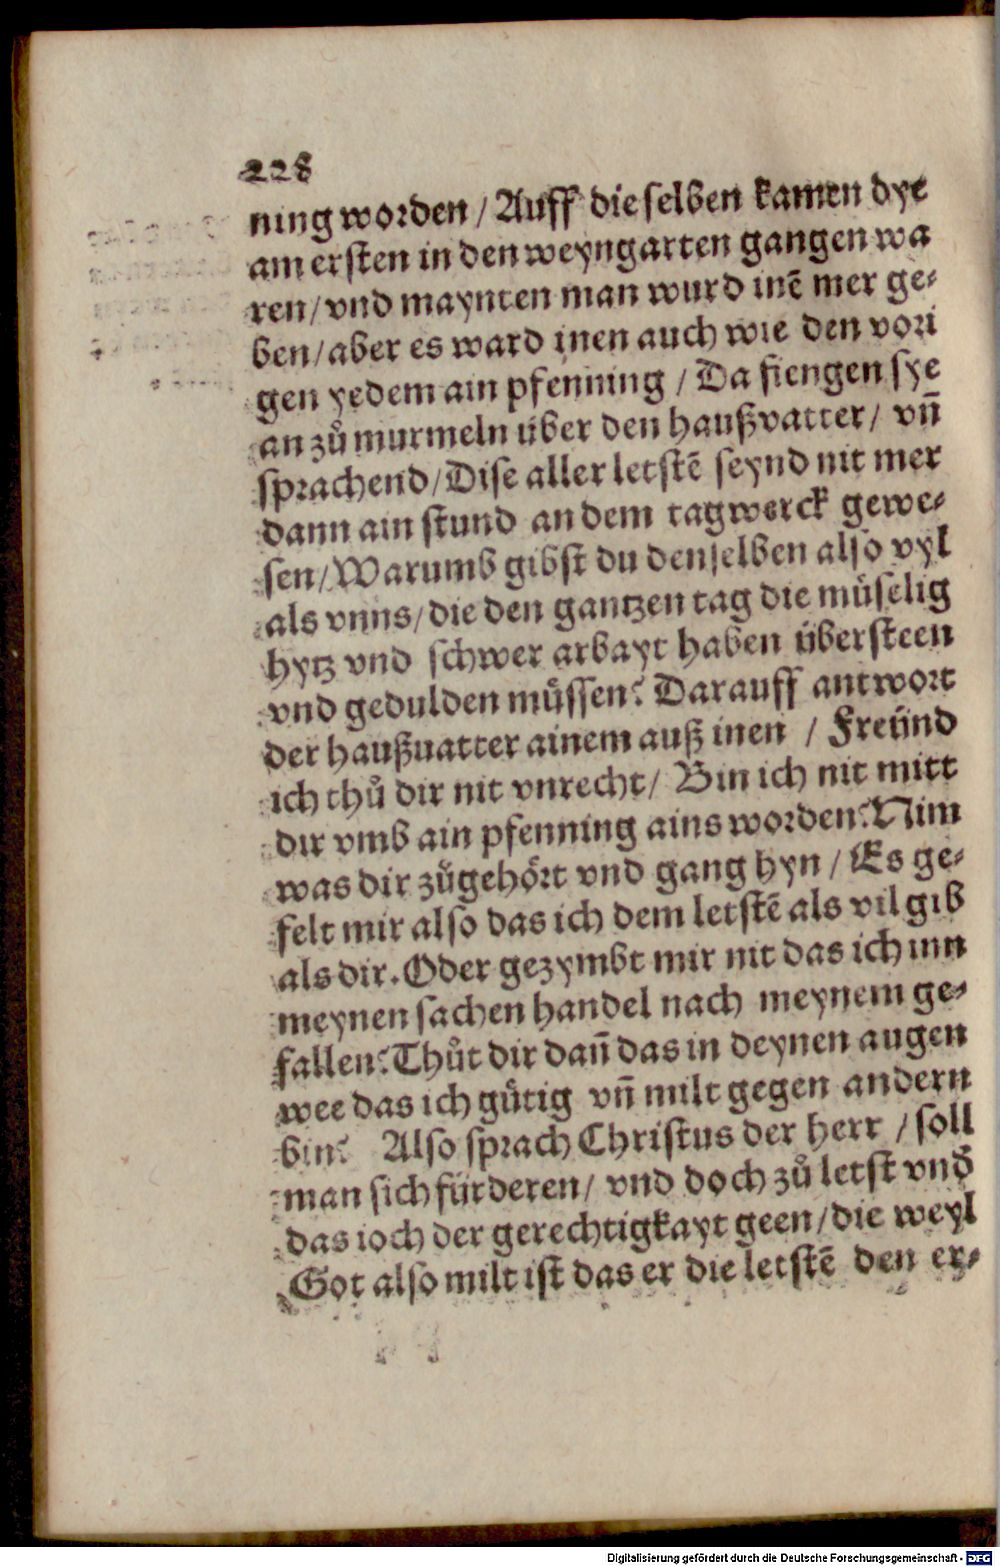 228
ning worden / Auff die selben kamen dye
am ersten in den weyngarten gangen wa
ren / vnd maynten man wurd inē mer ge⸗
ben / aber es ward inen auch wie den vori
gen yedem ain pfenning / Da fiengen sye
an zů murmeln über den haußvatter / vñ
sprachend / Dise aller letstē seynd nit mer
dann ain stund an dem tagwerck gewe⸗
sen / Warumb gibst du denselben also vyl
als vnns / die den gantzen tag die müselig
hytz vnd schwer arbayt haben übersteen
vnd gedulden müssen? Darauff antwort
der haußuatter ainem auß inen / Freünd
ich thů dir nit vnrecht / Bin ich nit mitt
dir vmb ain pfenning ains worden? Nim
was dir zůgehört vnd gang hyn / Es ge⸗
felt mir also das ich dem letstē als vil gib
als dir. Oder gezymbt mir nit das ich inn
meynen sachen handel nach meynem ge⸗
fallen? Thůt dir dañ das in deynen augen
wee das ich gütig vñ milt gegen andern
bin? Also sprach Christus der herr / soll
man sich fürderen / vnd doch zů letst vnd̕
das ioch der gerechtigkayt geen / die weyl
Got also milt ist das er die letstē den er⸗
Digitalisierung gefördert durch die Deutsche Forschungsgemeinschaft - DFG